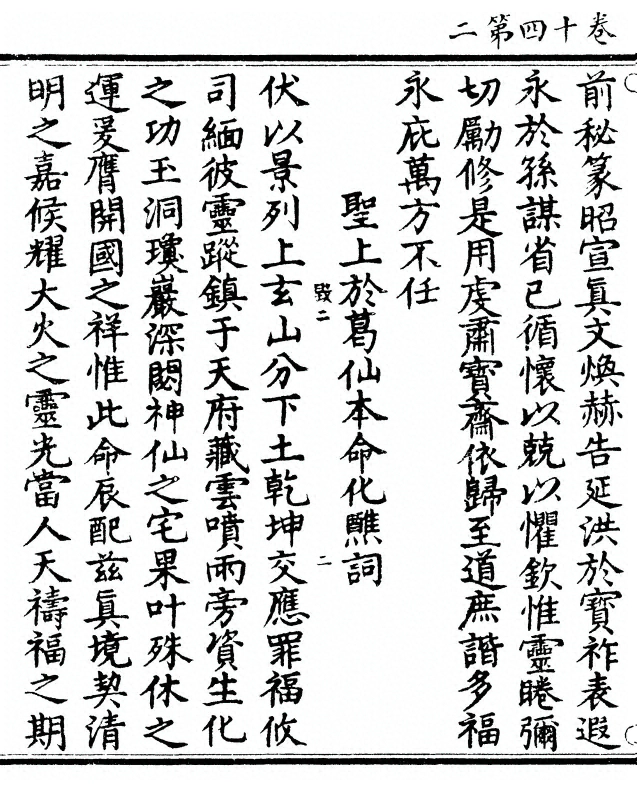 二第四十卷
前秘篆昭宣真文煥赫告延洪於寳祚表遐
永於孫謀省已循懷以兢以懼欽惟靈睠彌
切勵修是用虔肅寳齋依歸至道庶諧多福
永庇萬方不任
聖上於葛仙本命化醮詞
毀二
二
伏以景列上玄山分下土乾坤交應罪福攸
司緬彼靈蹤鎮于天府藏雲噴雨旁資生化
之功玉洞瓊巖深閟神仙之宅果叶殊休之
運爰膺開國之祥惟此命辰配兹真境契清
明之嘉候耀大火之靈光當人天禱福之期